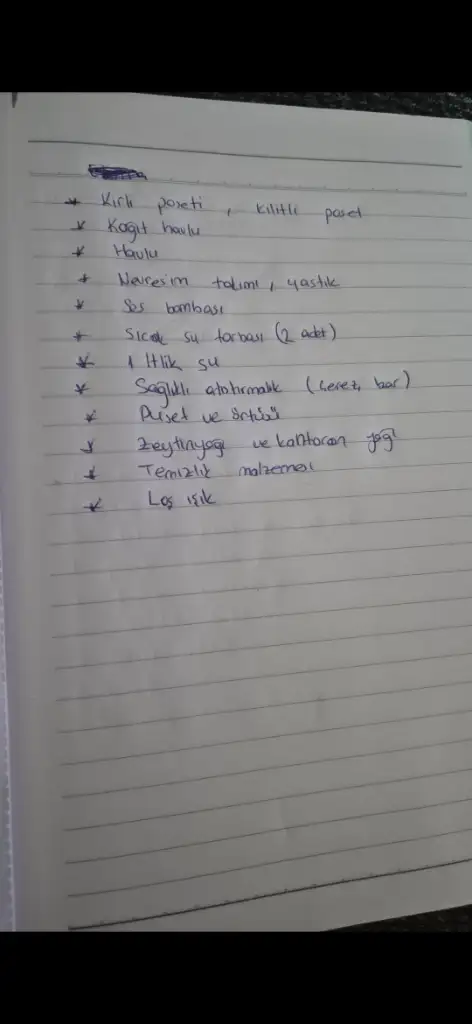 * Kirli poşeti, kilitli poşet
* Kağıt havlu
* Havlu
* Nevresim takımı, yastık
* Ses bombası
* Sıcak su torbası (2 adet)
* 1 ltlik su
* Sağlıklı atıştırmalık (Çerez, bar)
* Puset ve örtüsü
* Zeytinyağı ve kantoron yağı
* Temizlik malzemesi
* Loş ışık